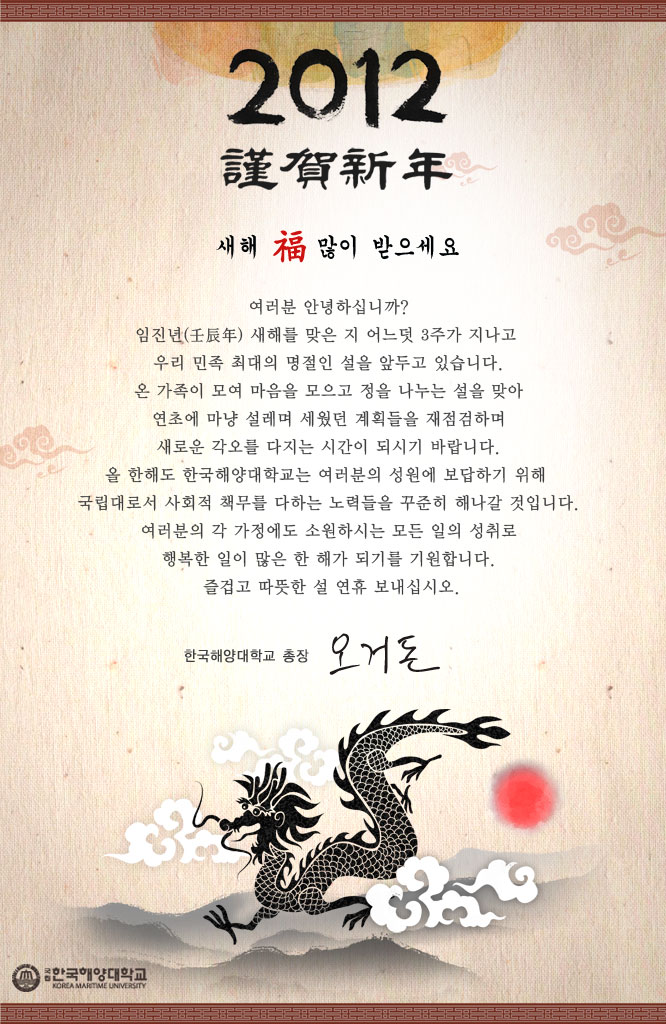 2012
謹賀新年
새해 福 많이 받으세요
여러분 안녕하십니까?
임진년(壬辰年) 새해를 맞은 지 어느덧 3주가 지나고
우리 민족 최대의 명절인 설을 앞두고 있습니다.
온 가족이 모여 마음을 모으고 정을 나누는 설을 맞아
연초에 마냥 설레며 세웠던 계획들을 재점검하며
새로운 각오를 다지는 시간이 되시기 바랍니다.
올 한해도 한국해양대학교는 여러분의 성원에 보답하기 위해
국립대로서 사회적 책무를 다하는 노력들을 꾸준히 해나갈 것입니다.
여러분의 각 가정에도 소원하시는 모든 일의 성취로
행복한 일이 많은 한 해가 되기를 기원합니다.
즐겁고 따뜻한 설 연휴 보내십시오.
한국해양대학교 총장 오거돈
국립 한국해양대학교
KOREA MARITIME UNIVERSITY